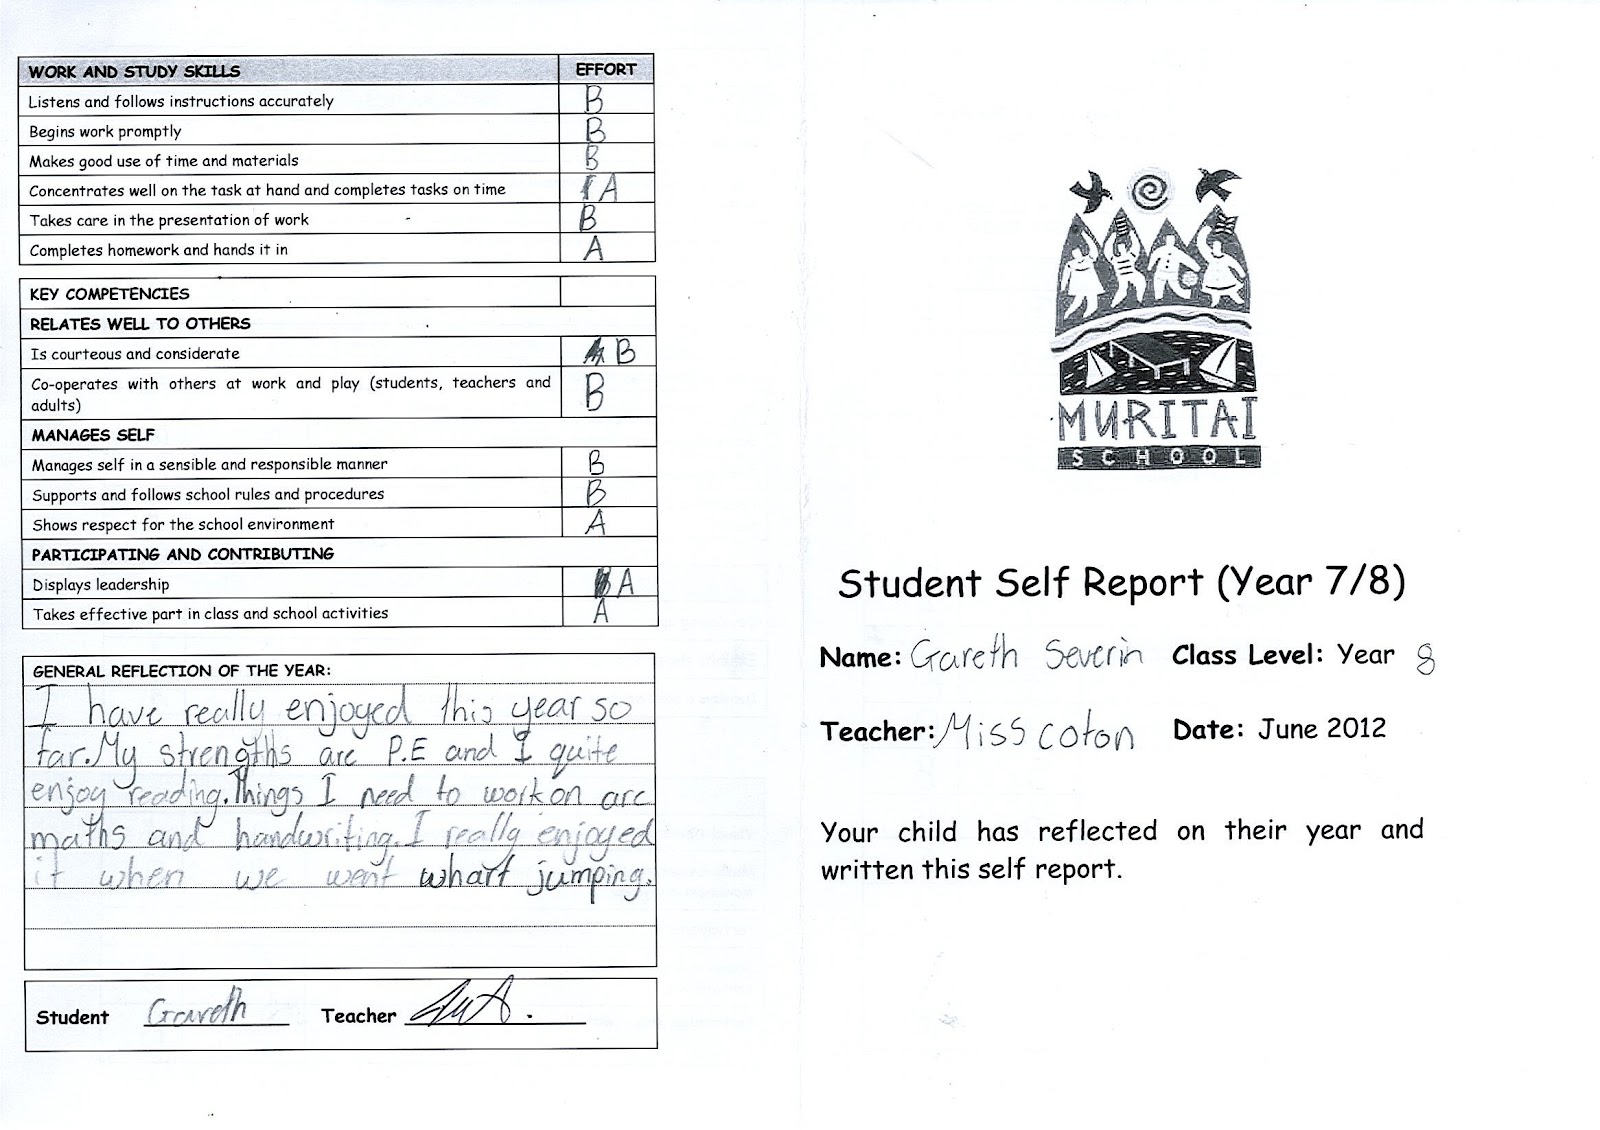 WORK AND STUDY SKILLS EFFORT
Listens and follows instructions accurately B
Begins work promptly B
Makes good use of time and materials B
Concentrates well on the task at hand and completes tasks on time A
Takes care in the presentation of work B
Completes homework and hands it in A
KEY COMPETENCIES
RELATES WELL TO OTHERS
Is courteous and considerate B
Co-operates with others at work and play (students, teachers and
adults) B
MANAGES SELF
Manages self in a sensible and responsible manner B
Supports and follows school rules and procedures B
Shows respect for the school environment A
PARTICIPATING AND CONTRIBUTING
Displays leadership A
Takes effective part in class and school activities A
GENERAL REFLECTION OF THE YEAR:
I have really enjoyed this year so
far. My strengths are P.E and I quite
enjoy reading. Things I need to work on are
maths and handwriting. I really enjoyed
it when we went wharf jumping.
Student Gareth Teacher
MURITAI
SCHOOL
Student Self Report (Year 7/8)
Name: Gareth Severin Class Level: Year 8
Teacher: Miss coton Date: June 2012
Your child has reflected on their year and
written this self report.